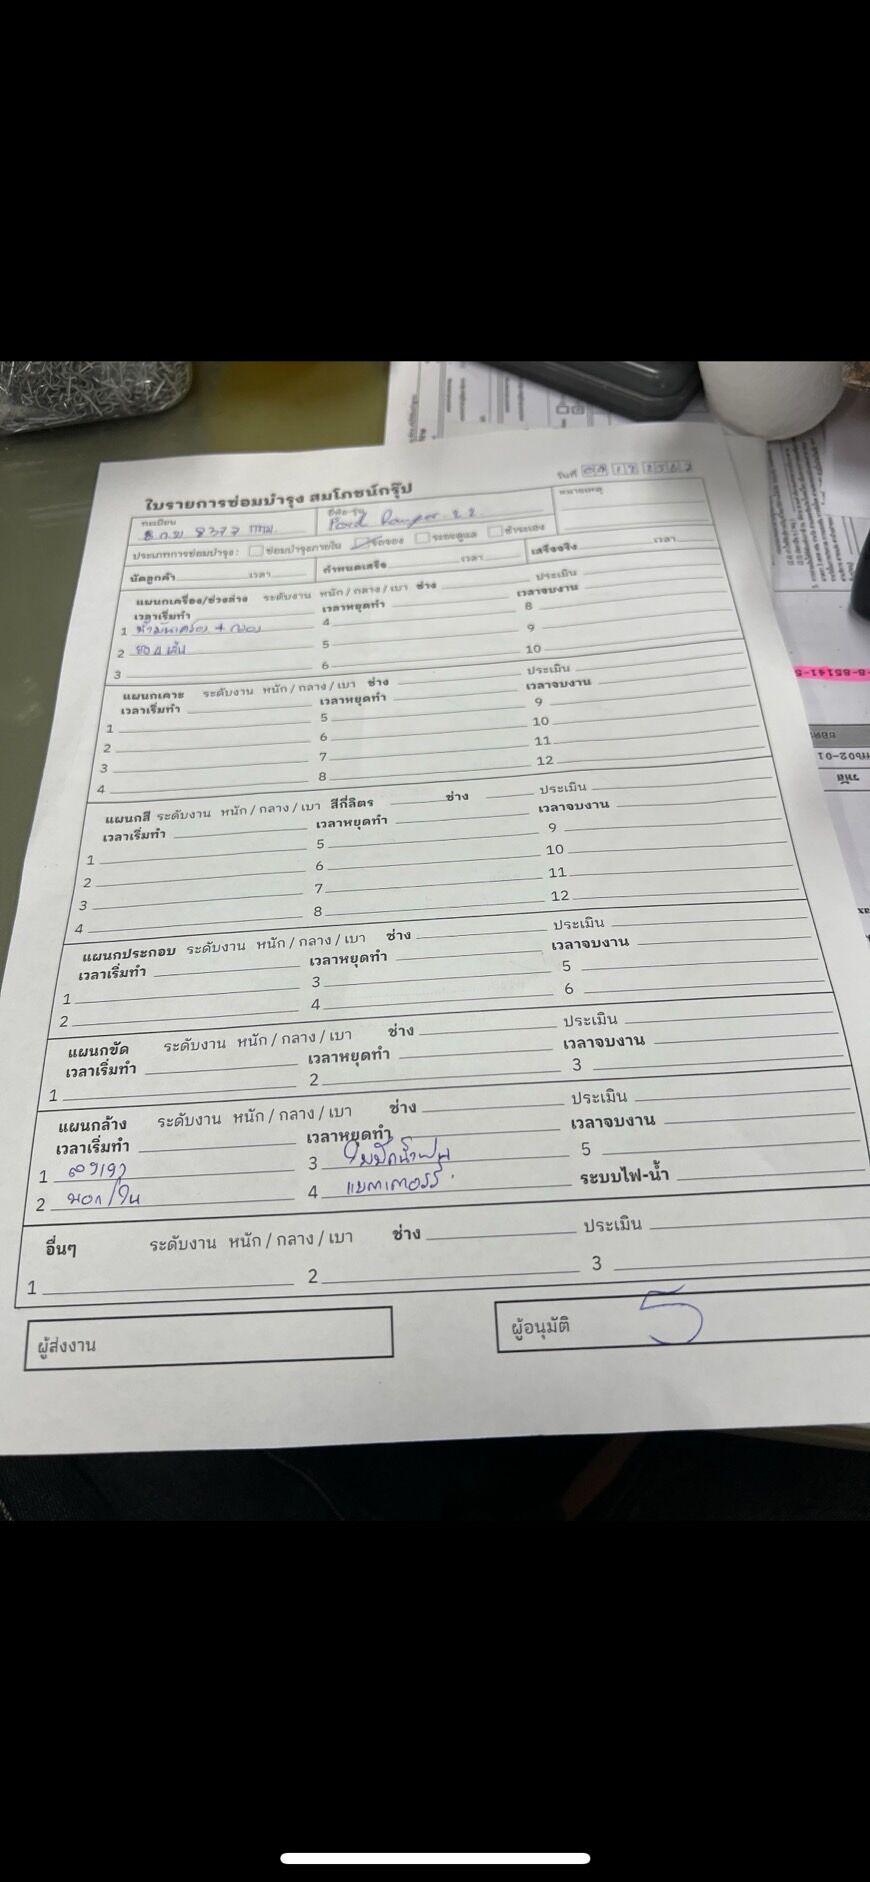 ใบรายการซ่อมบำรุง สมโภชน์กรุ๊ป
วันที่ 04 12 2567
ทะเบียน 8377 กทม. ยี่ห้อ-รุ่น Ford Ranger 2.2 หมายเหตุ
ประเภทการซ่อมบำรุง : ซ่อมบำรุงภายใน รถจอง ระยะดูแล ชำระเอง
นัดลูกค้า เวลา กำหนดเสร็จ เวลา เสร็จจริง เวลา
แผนกเครื่อง/ช่วงล่าง ระดับงาน หนัก / กลาง / เบา ช่าง ประเมิน
เวลาเริ่มทำ เวลาหยุดทำ เวลาจบงาน
1 น้ำมันเครื่อง + กรอง 4 8
2 ยาง 4 เส้น 5 9
3 6 10
แผนกเคาะ ระดับงาน หนัก / กลาง / เบา ช่าง ประเมิน
เวลาเริ่มทำ เวลาหยุดทำ เวลาจบงาน
1 5 9
2 6 10
3 7 11
4 8 12
แผนกสี ระดับงาน หนัก / กลาง / เบา สีกี่ลิตร ช่าง ประเมิน
เวลาเริ่มทำ เวลาหยุดทำ เวลาจบงาน
1 5 9
2 6 10
3 7 11
4 8 12
แผนกประกอบ ระดับงาน หนัก / กลาง / เบา ช่าง ประเมิน
เวลาเริ่มทำ เวลาหยุดทำ เวลาจบงาน
1 3 5
2 4 6
แผนกขัด ระดับงาน หนัก / กลาง / เบา ช่าง ประเมิน
เวลาเริ่มทำ เวลาหยุดทำ เวลาจบงาน
1 2 3
แผนกล้าง ระดับงาน หนัก / กลาง / เบา ช่าง ประเมิน
เวลาเริ่มทำ เวลาหยุดทำ เวลาจบงาน
1 ลงเงา 3 ใบปัดน้ำฝน 5
2 นอก/ใน 4 แบตเตอรรี่ ระบบไฟ-น้ำ
อื่นๆ ระดับงาน หนัก / กลาง / เบา ช่าง ประเมิน
1 2 3
ผู้ส่งงาน ผู้อนุมัติ